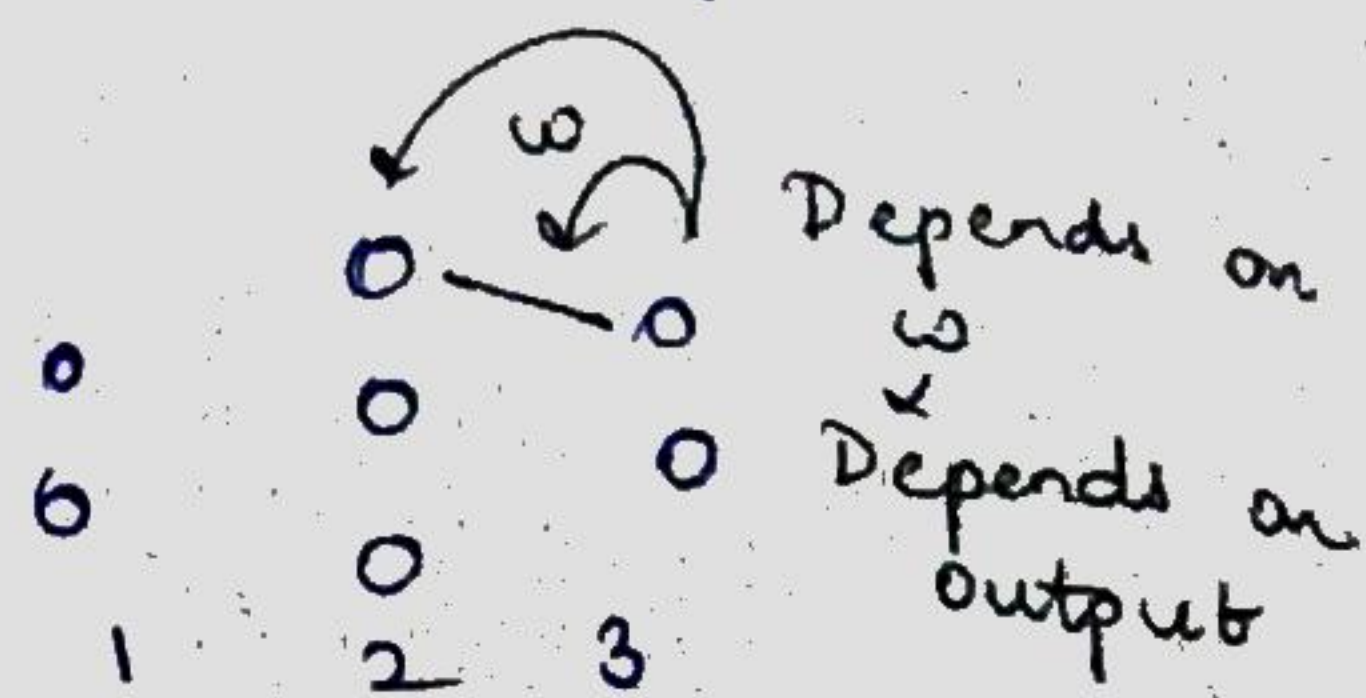 ω
Depends on
ω
Depends on
output
1 2 3